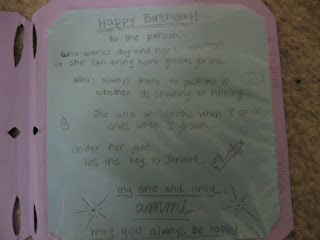 Happy Birthday!
to the person...
Who works day and night,
so she can bring home goodies for me...
Who's always there to pick me up
whether its snowing or raining...
The one who laughs when I grin
cries when I frown...
Under her feet
lies the key to Jannat...
my one and only...
ammi
may you always be happy